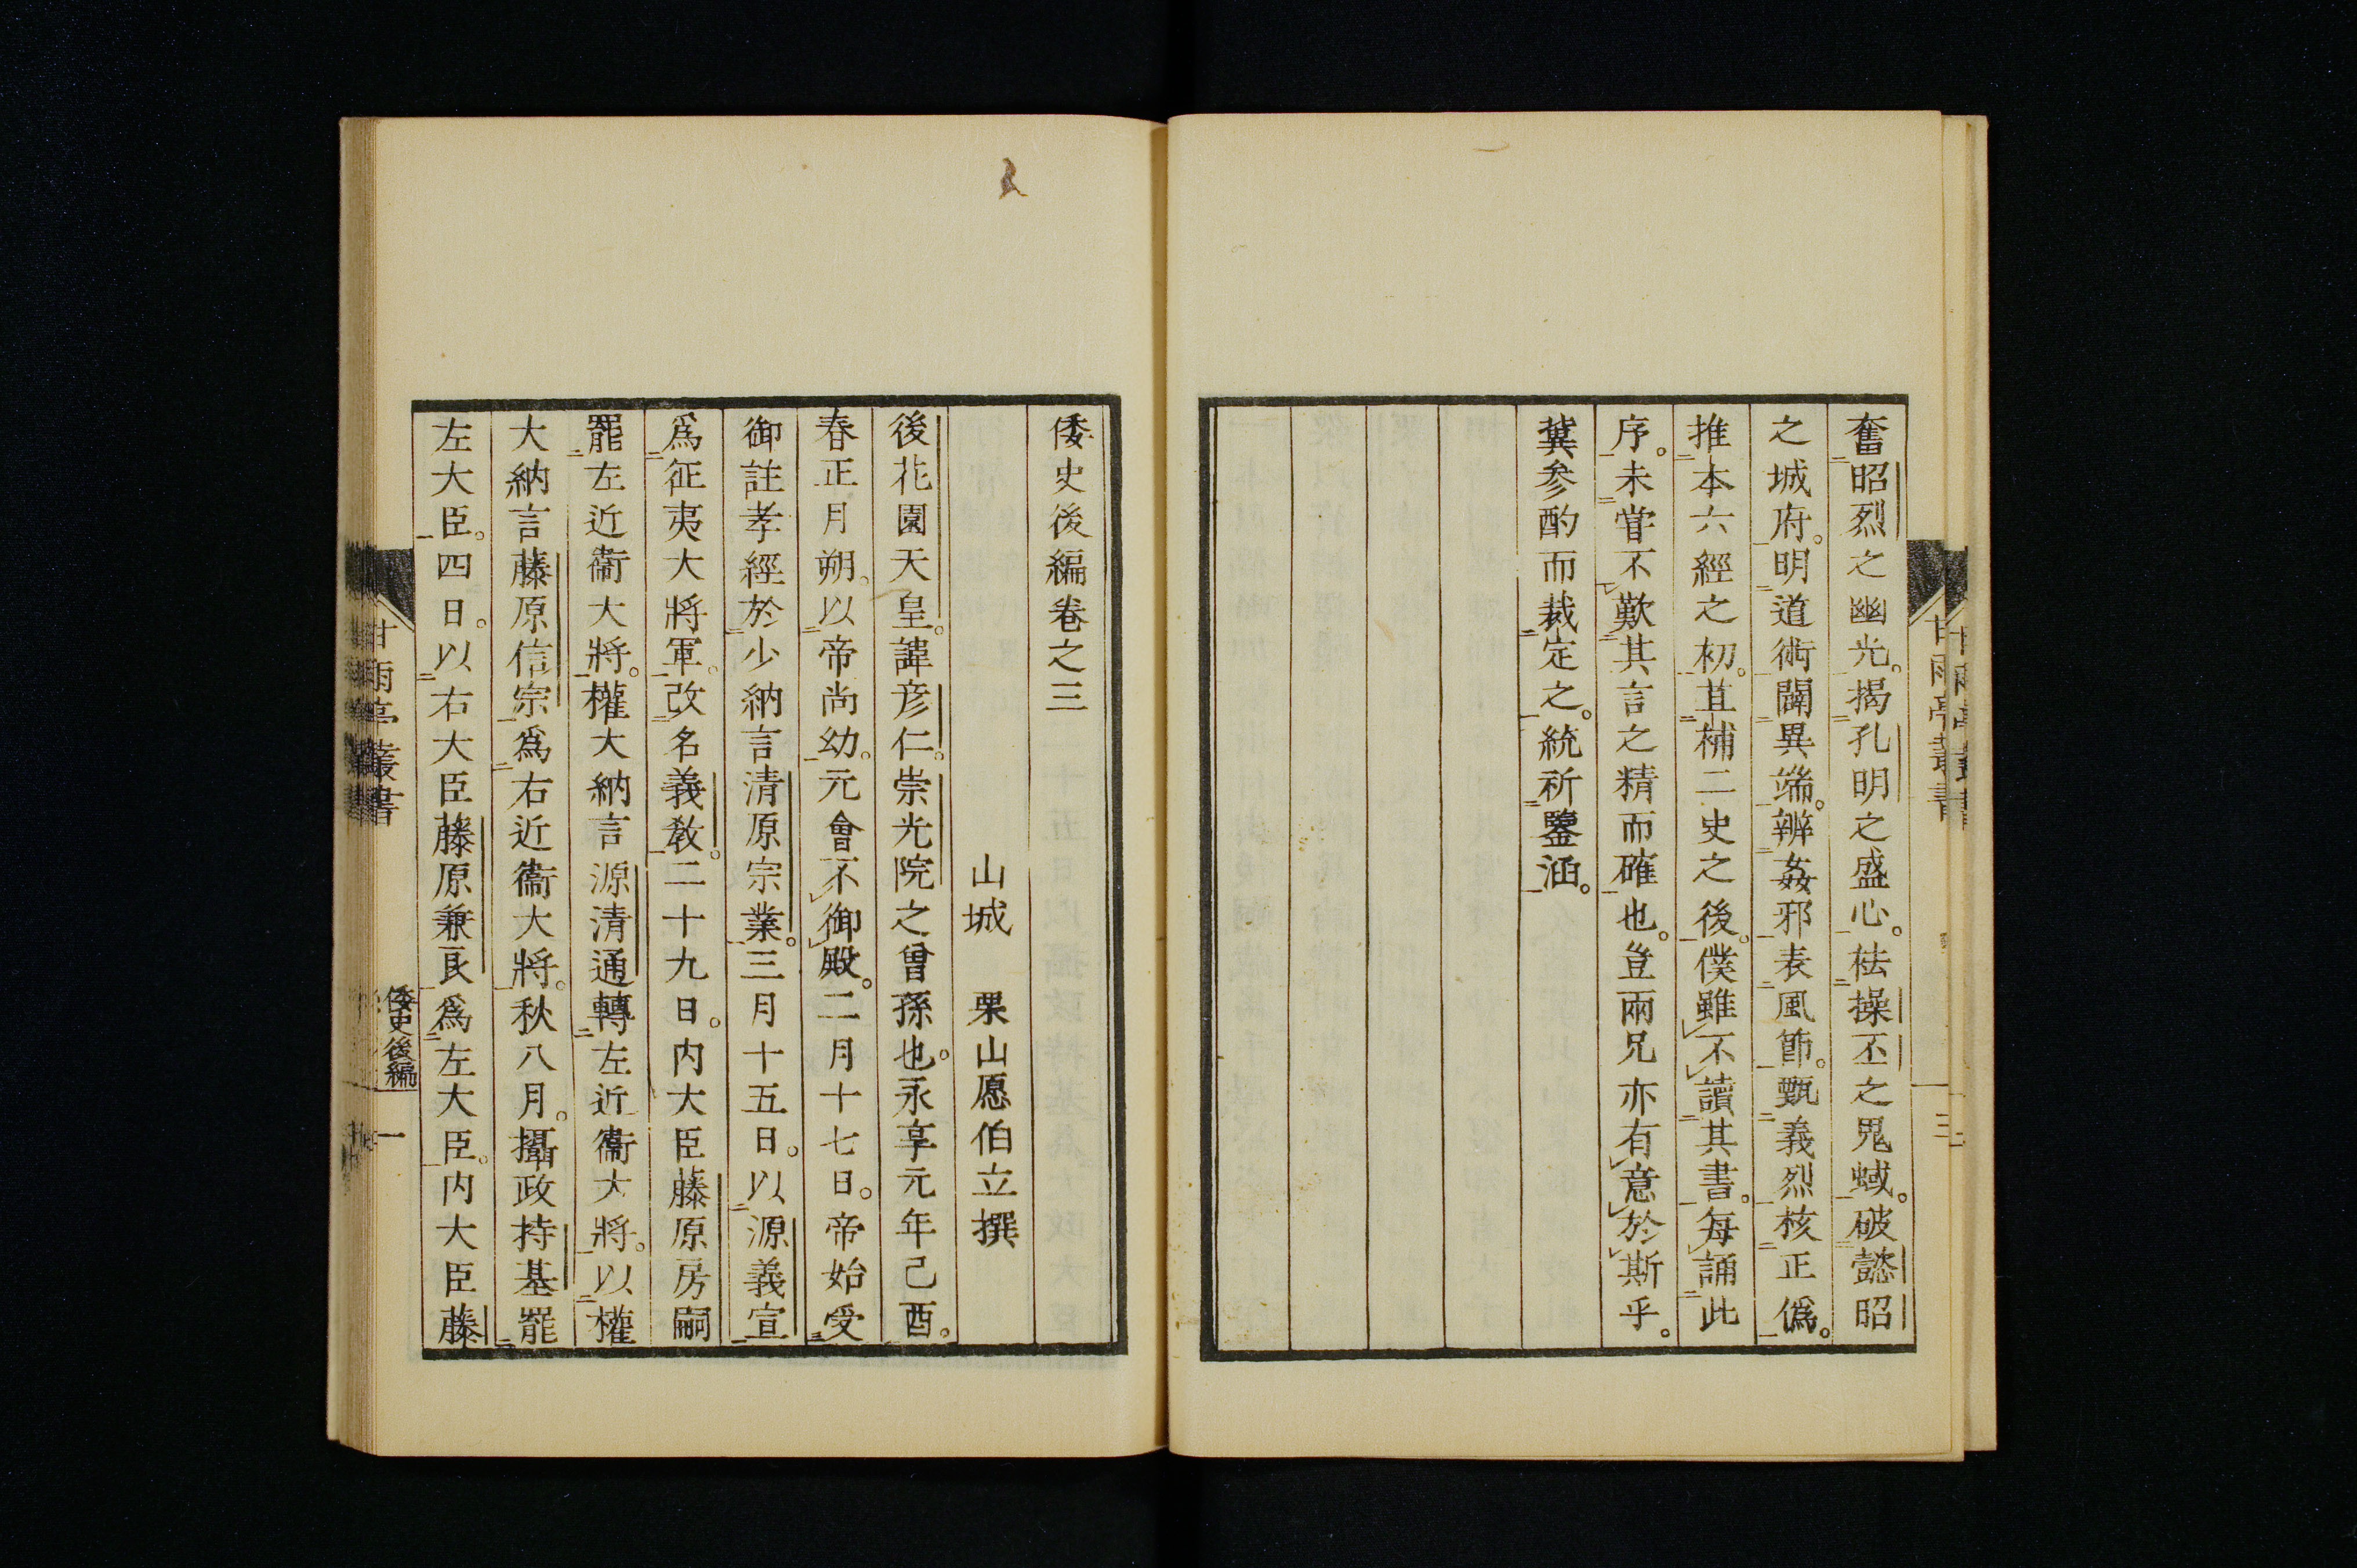 奮昭烈之幽光。揭孔明之盛心。祛操丕之鬼蜮。破懿昭
之城府。明道術闢異端。辨姦邪表風節。甄義烈核正僞。
推本六經之初。苴補二史之後。僕雖不讀其書。每誦此
序。未甞不歎其言之精而確也。豈兩兄亦有意於斯乎。
冀參酌而裁定之。統祈鑒涵。
甘雨亭叢書
三
倭史後編卷之三
山城 栗山愿伯立撰
後花園天皇。諱彦仁。崇光院之曾孫也。永享元年己酉。
春正月朔。以帝尚幼。元會不御殿。二月十七日。帝始受
御註孝經於少納言清原宗業。三月十五日。以源義宣
爲征夷大將軍。改名義教。二十九日。内大臣藤原房嗣
罷左近衞大將。權大納言源清通轉左近衞大將。以權
大納言藤原信宗爲右近衞大將。秋八月。攝政持基罷
左大臣。四日。以右大臣藤原兼良爲左大臣。内大臣藤
甘雨亭叢書
倭史後編
一